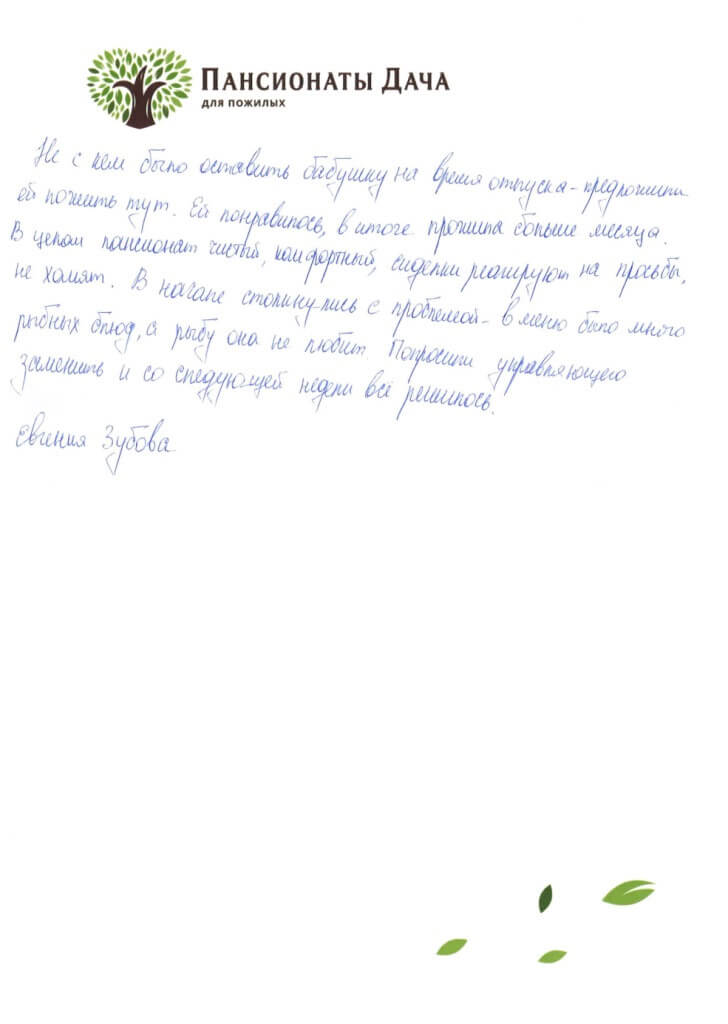 ПАНСИОНАТЫ ДАЧА
ДЛЯ ПОЖИЛЫХ
Не с кем было оставить бабушку на время отпуска - предложили
ей пожить тут. Ей понравилось, в итоге прожила больше месяца.
В целом пансионат чистый, комфортный, сиделки реагируют на просьбы,
не хамят. В начале столкнулись с проблемой - в меню было много
рыбных блюд, а рыбу она не любит. Попросили управляющего
заменить и со следующей недели всё решилось.
Евгения Зубова